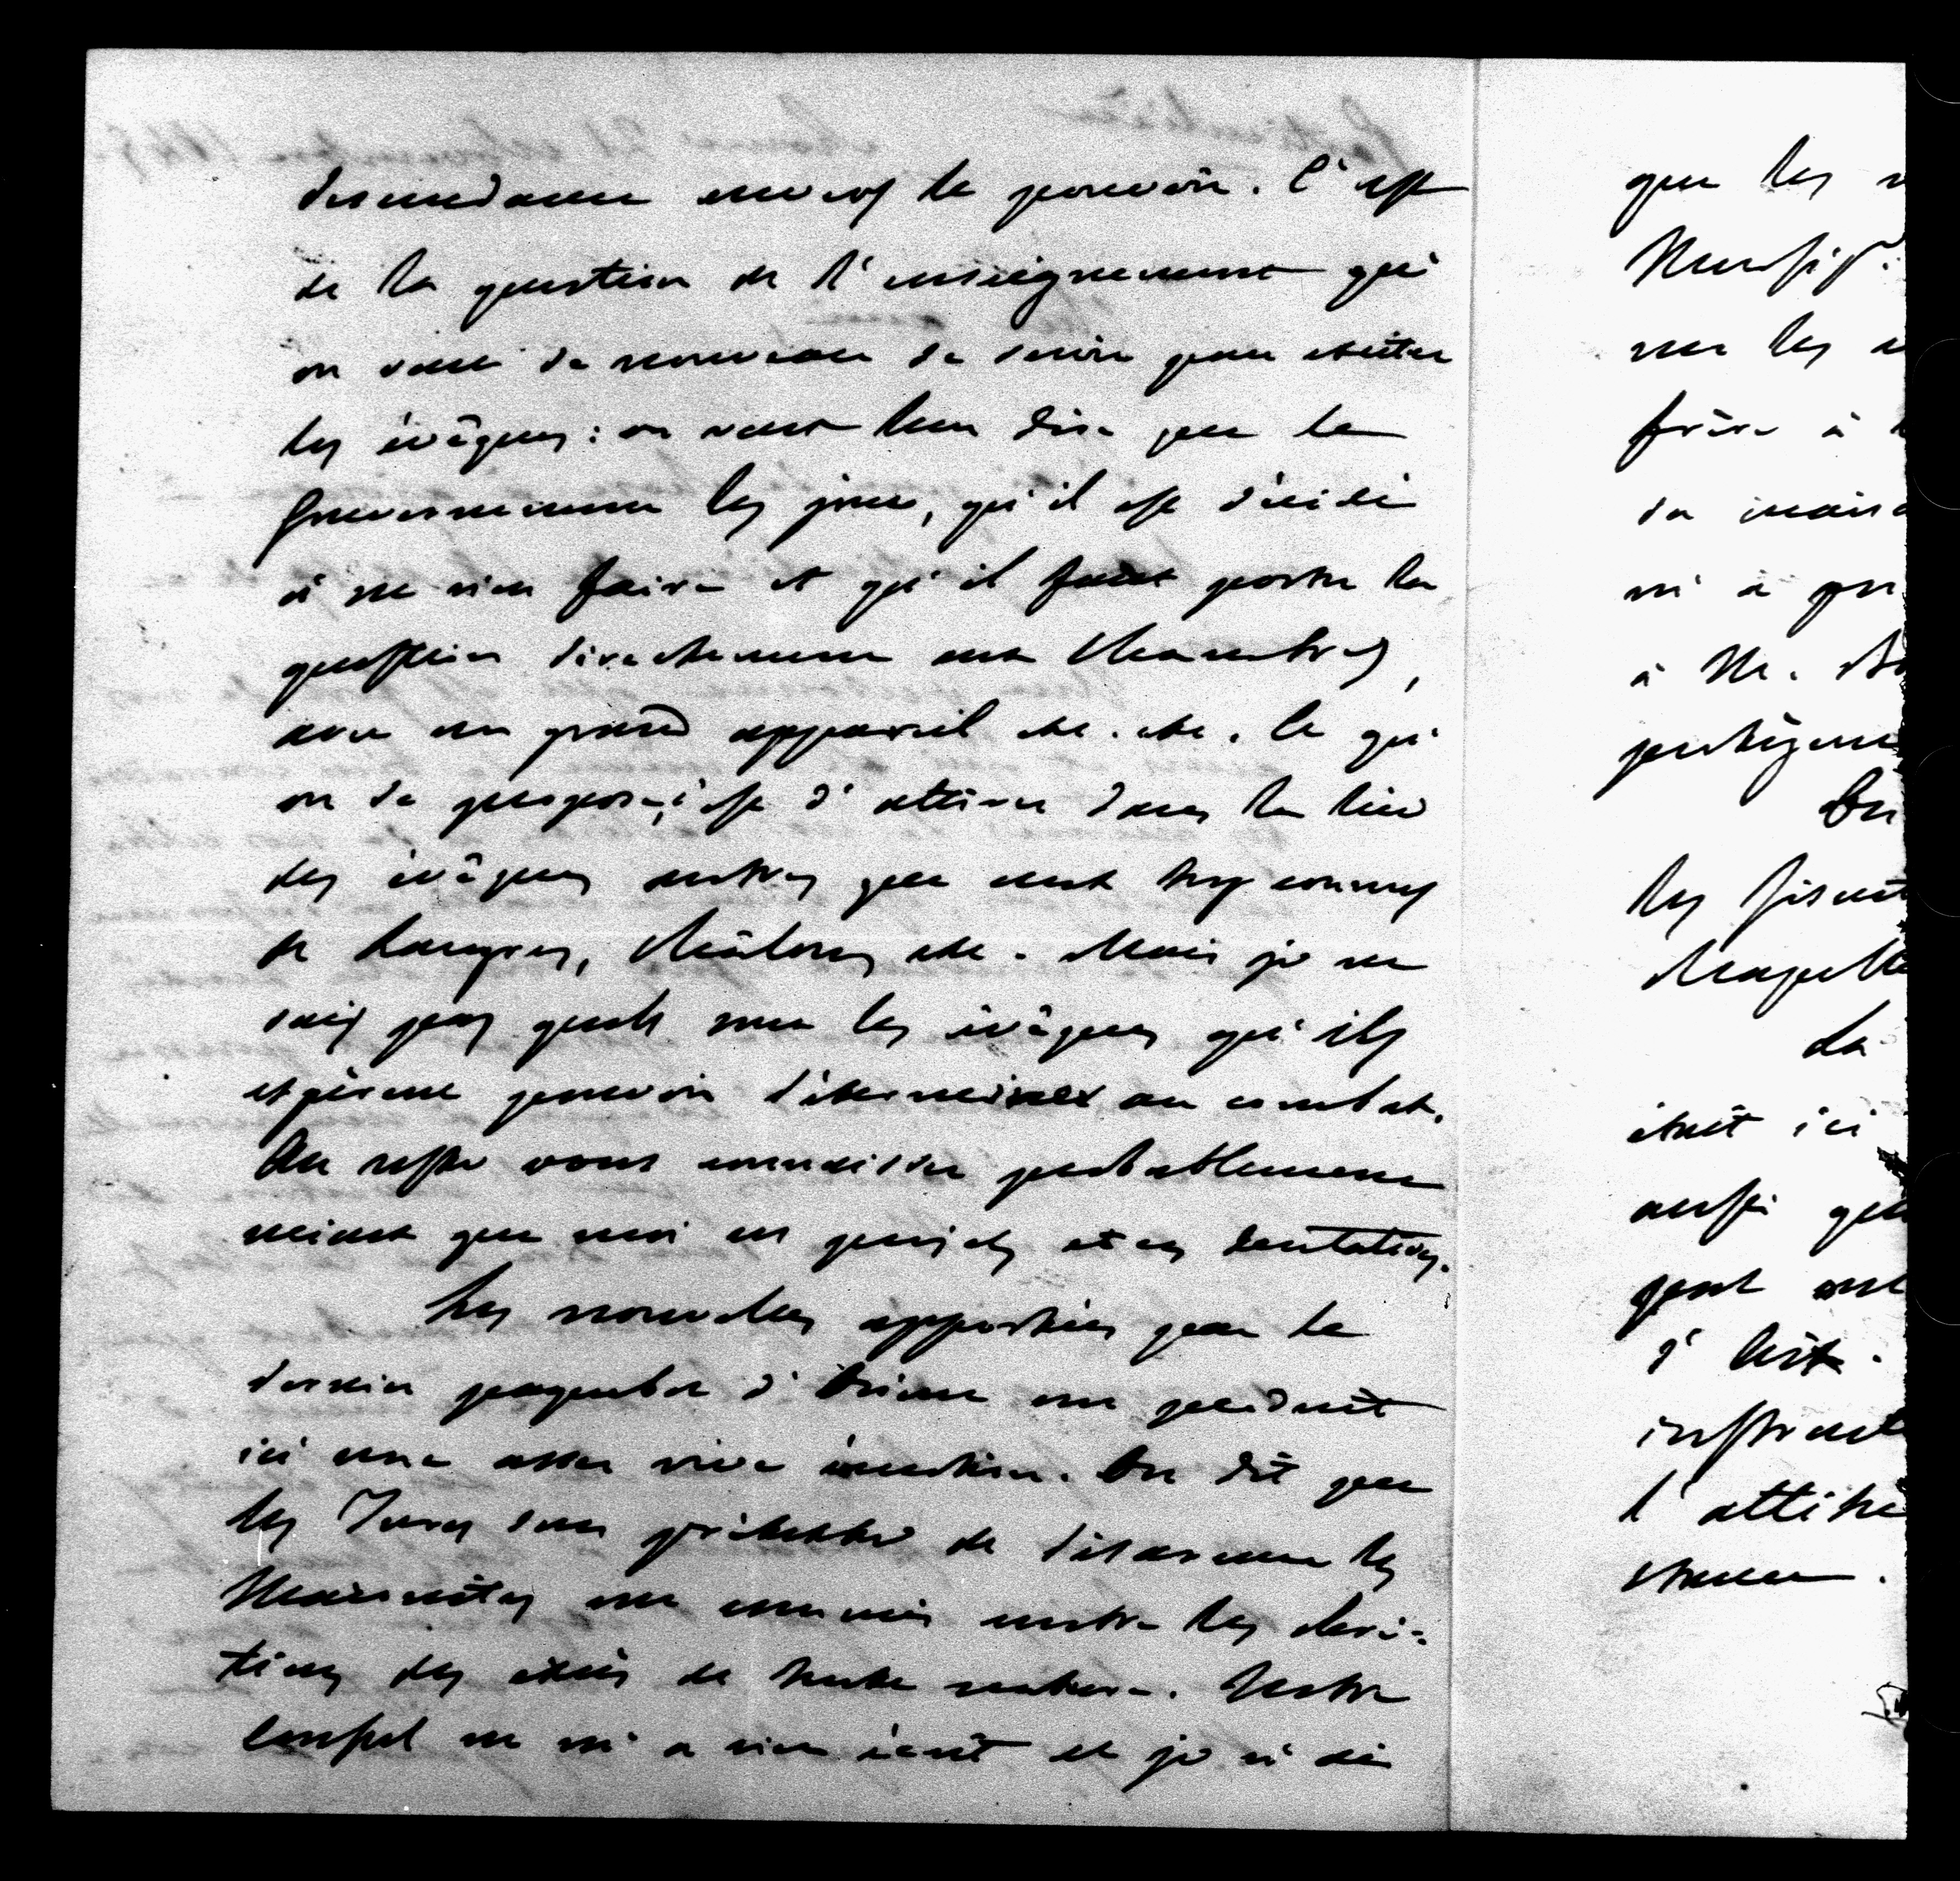 descendance envers le pouvoir. C'est
de la question de l'enseignement qu'
on veut de nouveau se servir pour exciter
les évêques : on veut leur dire que le
Gouvernement les joue, qu'il est décidé
à ne rien faire et qu'il faut porter la
question directement aux Chambres,
avec un grand appareil etc. etc. Ce qu'
on se propose, c'est d'attirer dans la lice
des évêques autres que ceux trop connus
de Langres, Châlons etc. Mais je ne
sais pas quels sont les évêques qu'ils
espèrent pouvoir déterminer au combat.
Au reste vous connaissez probablement
mieux que moi ces projets et ces tentatives.
Les nouvelles apportées par le
dernier paquebot d'Orient ont produit
ici une assez vive émotion. On dit que
les Turcs sous prétexte de désarmer les
Maronites ont commis contre les chré-
tiens des excès de toute nature. Notre
Consul ne m'a rien écrit et je n'ai
que les
Monsig.r
sur les
frère à
sa
à M.
On
les
La
était ici
aussi que
instruct